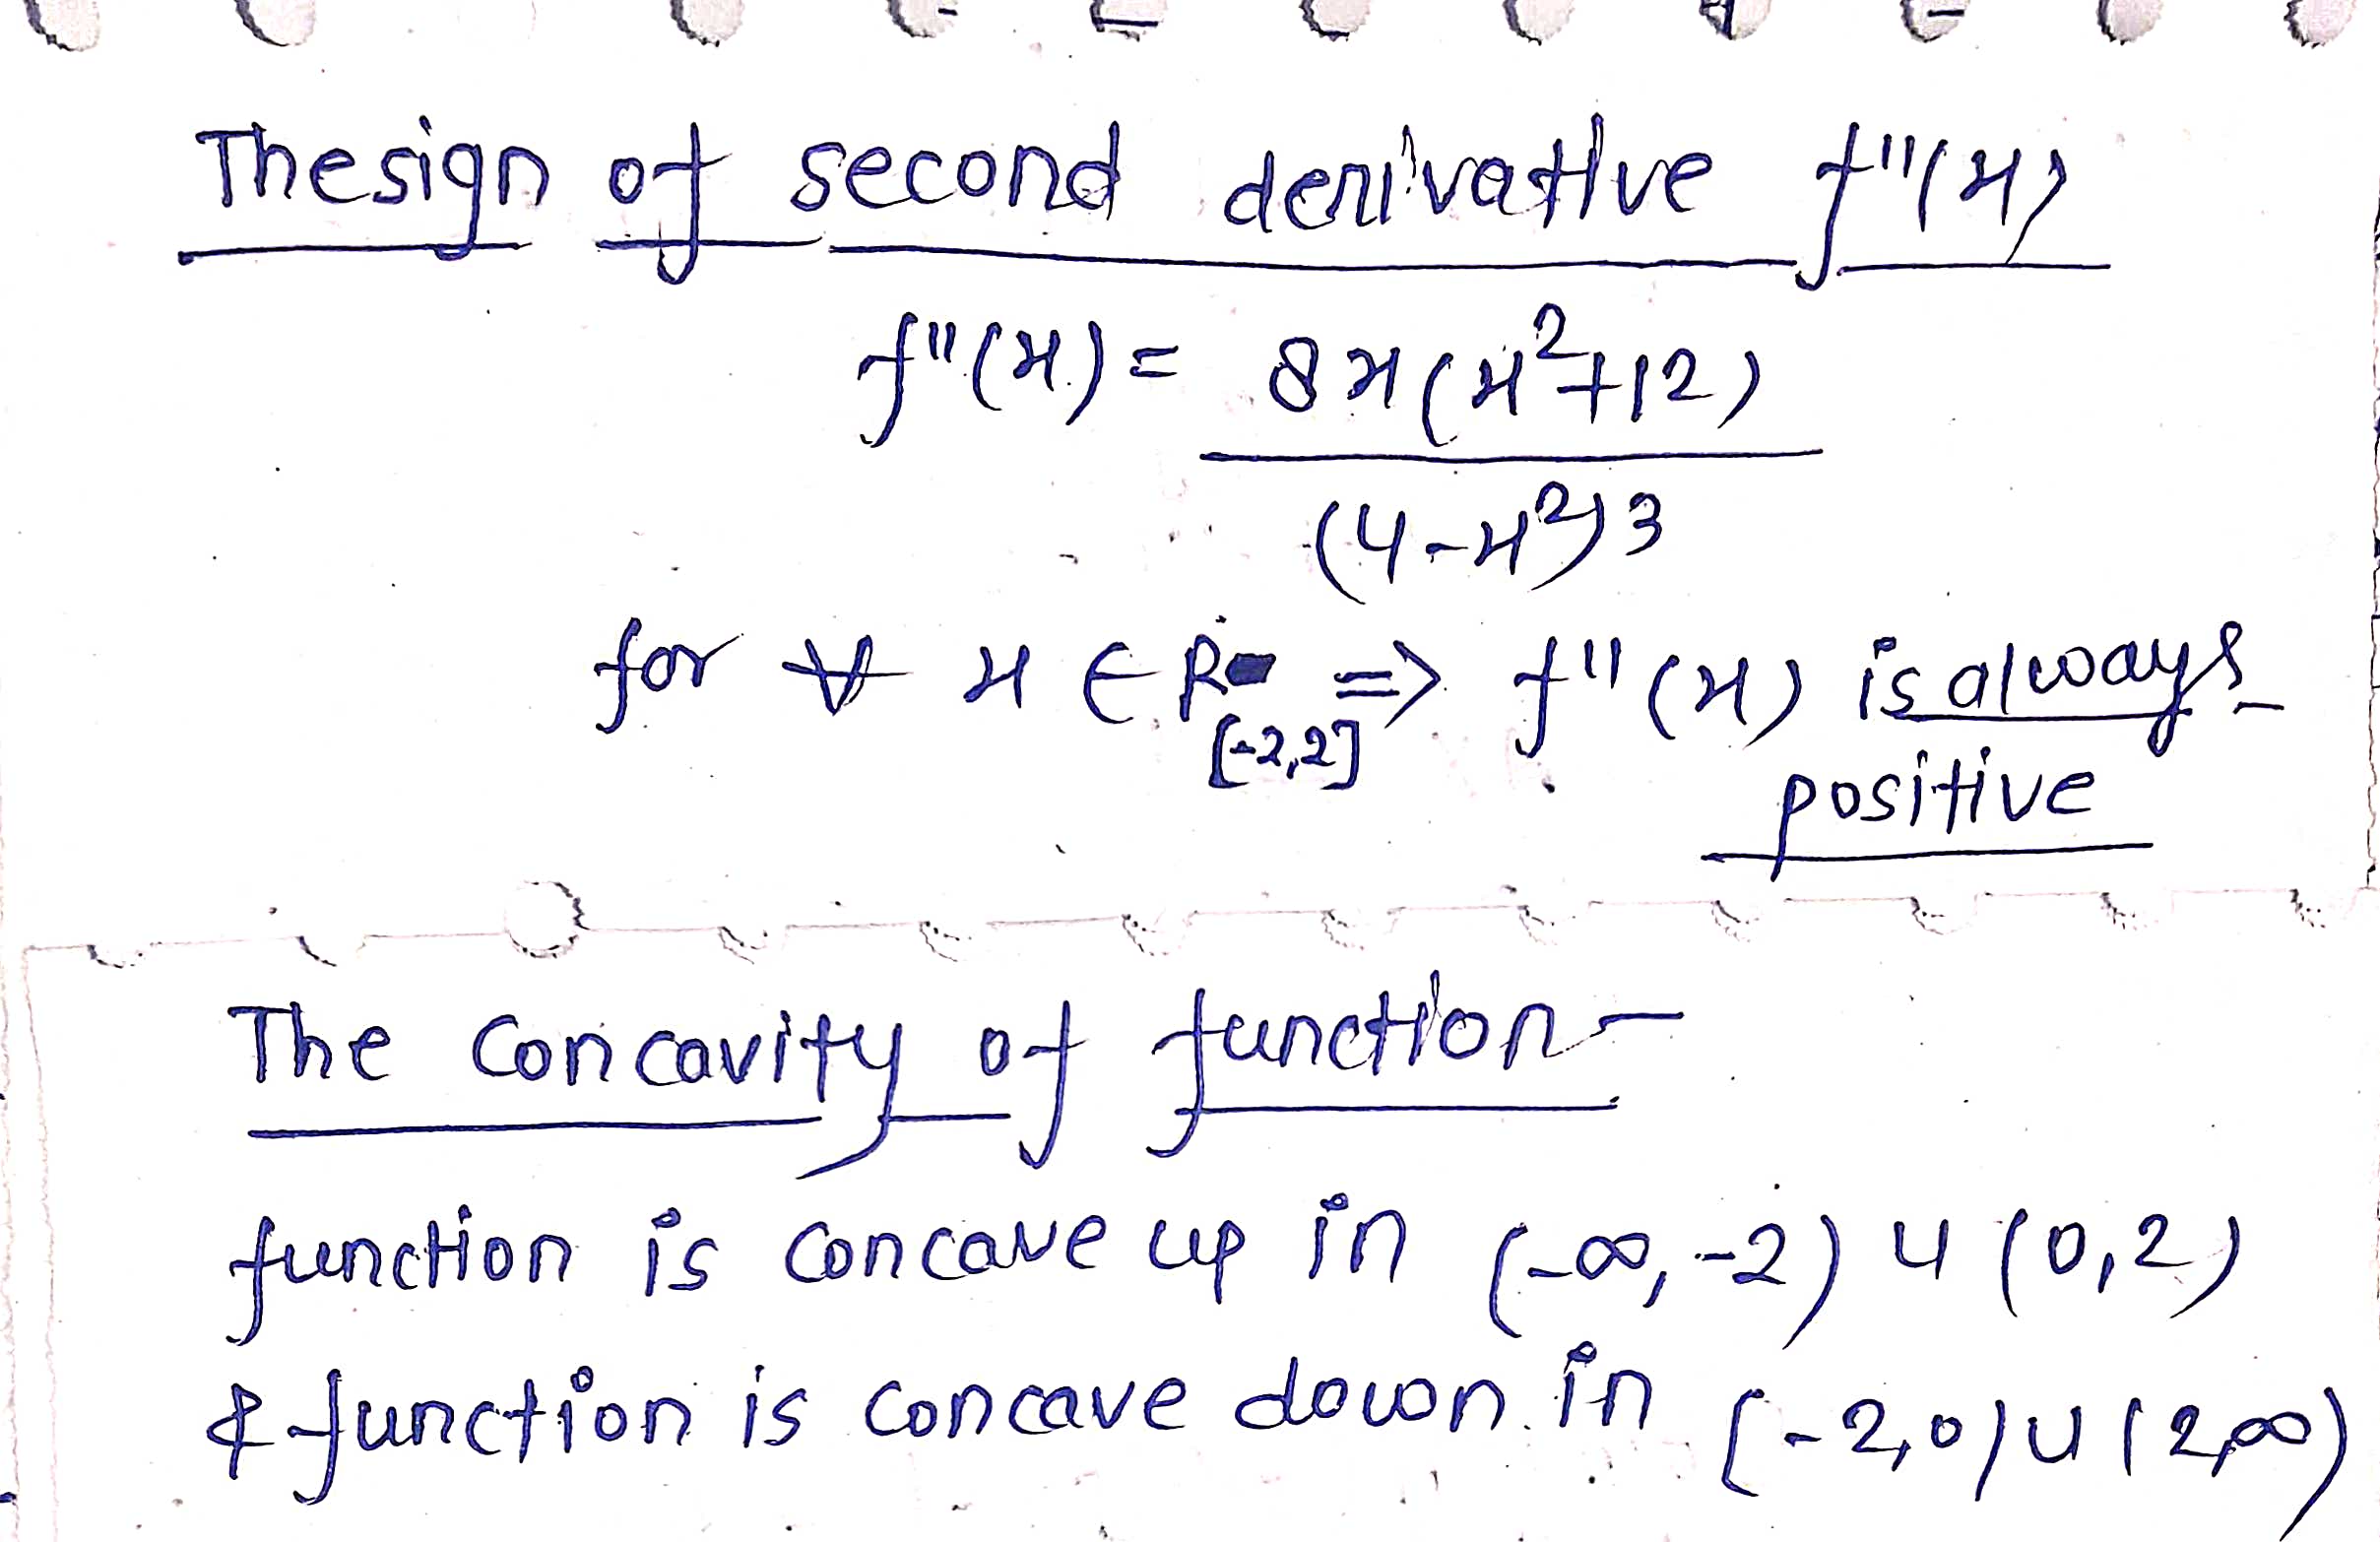 The sign of second derivative f''(x)
f''(x) = 8x(x²+12)
(4-x²)3
for ∀ x ∈ R => f''(x) is always
[-2,2]
positive
The concavity of function-
function is concave up in (-∞, -2) U (0,2)
& function is concave down in (-2,0) U (2,∞)